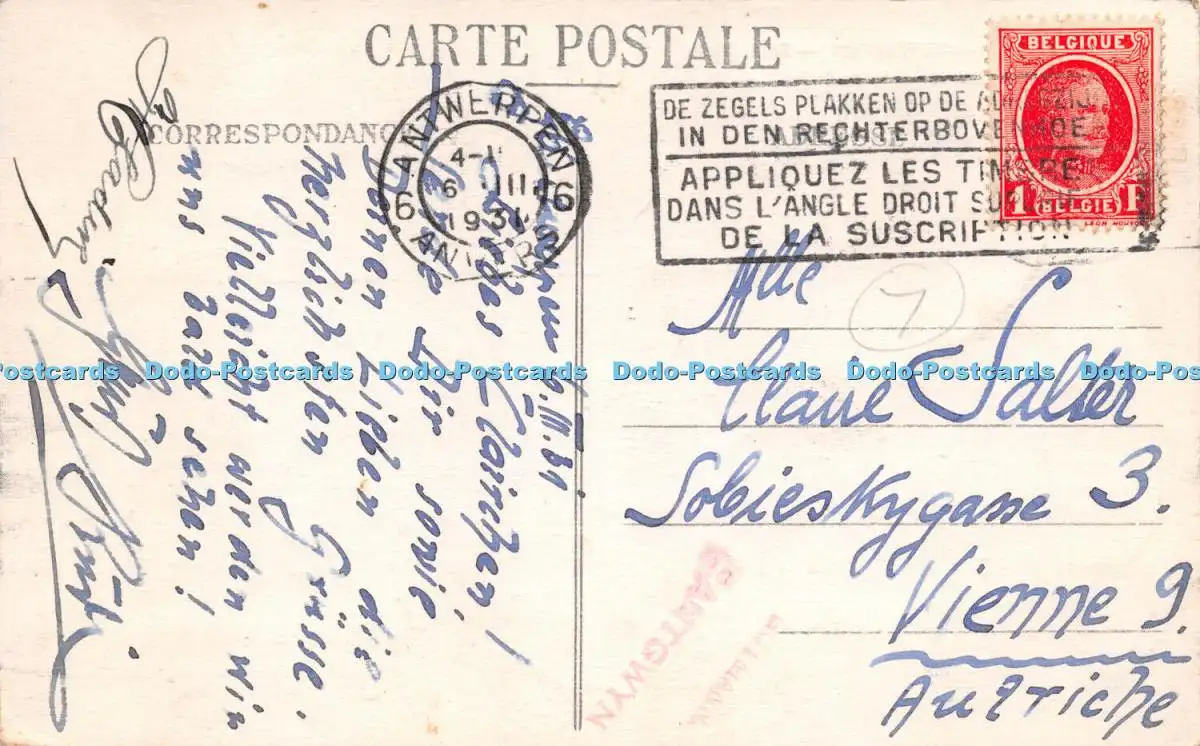 CARTE POSTALE
CORRESPONDANCE
BELGIQUE
1 BELGIË F
ANTWERPEN
6 6
4-
6 III
1931
ANVERS
DE ZEGELS PLAKKEN OP DE
IN DEN RECHTERBOVENHOE
APPLIQUEZ LES TIMBRE
DANS L'ANGLE DROIT
DE LA SUSCRIPTION
7
Mlle
Claire Salter
Sobieskygasse 3.
Vienne 9.
Autriche
6.III.31
Liebes Clairchen!
Sende Dir sowie
Deinen Lieben die
herzlichsten Grüsse.
Villeicht werden wir
uns bald sehen!
PANTGWYN
Dodo-Postcards Dodo-Postcards Dodo-Postcards Dodo-Postcards Dodo-Postcards Dodo-Postcards